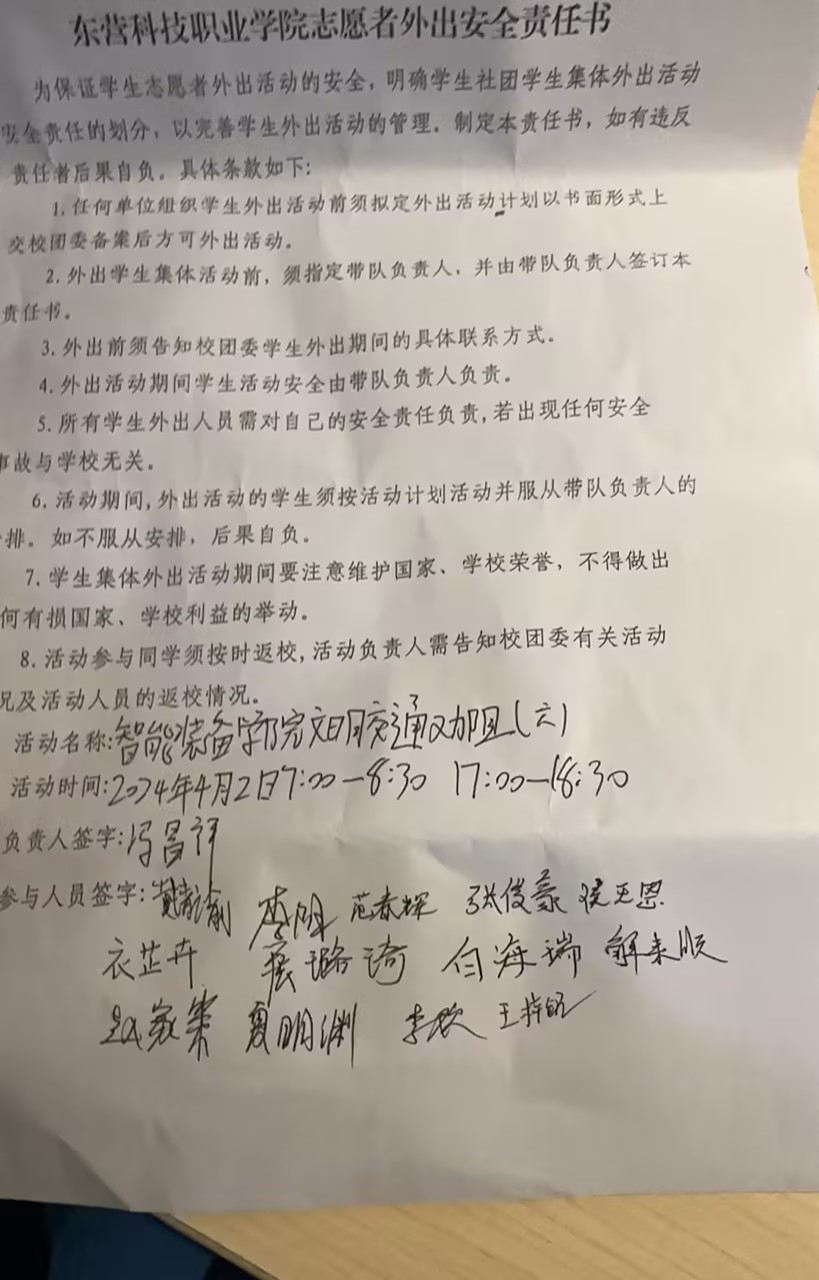 东营科技职业学院志愿者外出安全责任书
为保证学生志愿者外出活动的安全，明确学生社团学生集体外出活动
安全责任的划分，以完善学生外出活动的管理。制定本责任书，如有违反
责任者后果自负。具体条款如下：
1. 任何单位组织学生外出活动前须拟定外出活动计划以书面形式上
交校团委备案后方可外出活动。
2. 外出学生集体活动前，须指定带队负责人，并由带队负责人签订本
责任书。
3. 外出前须告知校团委学生外出期间的具体联系方式。
4. 外出活动期间学生活动安全由带队负责人负责。
5. 所有学生外出人员需对自己的安全责任负责,若出现任何安全
事故与学校无关。
6. 活动期间,外出活动的学生须按活动计划活动并服从带队负责人的
排。如不服从安排，后果自负。
7. 学生集体外出活动期间要注意维护国家、学校荣誉，不得做出
何有损国家、学校利益的举动。
8. 活动参与同学须按时返校,活动负责人需告知校团委有关活动
况及活动人员的返校情况。
活动名称:智能装备学院文明交通又加岗(六)
活动时间:2024年4月2日7:00—8:30 17:00—18:30
负责人签字:冯昌祥
参与人员签字: 李明 范春辉 张俊豪
衣芷卉 璐琦 白海瑞 解来顺
夏明渊 李欣